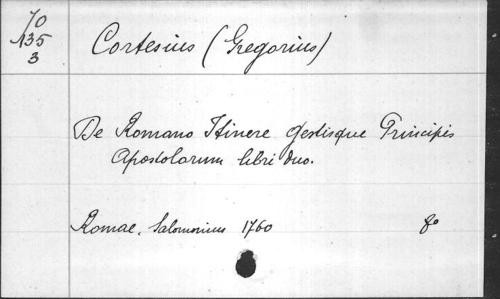 70
135
3
Cortesius (Gregorius)
De Romano Itinere gestisque Principis
Apostolorum libri duo.
Romae, Salomonius 1760 fo